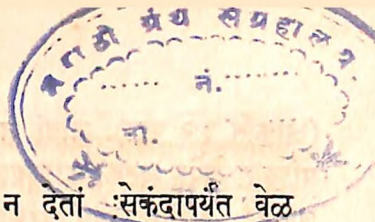 मराठी ग्रंथ संग्रहालय.
नं.
ना.
न देतां सेकंदापर्यंत वेळ